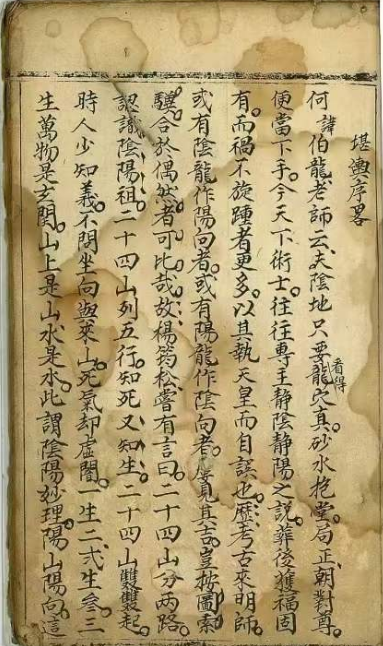 堪輿序畧
何諱伯龍老師云夫陰地只要看得龍穴真砂水抱堂局正朝對尊
便當下手今天下術士往往專主靜陰靜陽之說葬後獲福固
有而禍不旋踵者更多以其執天皇而自誤也歷考古來明師
或有陰龍作陽向者或有陽龍作陰向者屢見其吉豈按圖索
驥合於偶然者可比哉故楊筠松嘗有言曰二十四山分兩路
認識陰陽祖二十四山列五行知死又知生二十四山雙雙起
時人少知義不問坐向與來山死氣却虛閣一生二弍生叁三
生萬物是玄関山上是山水是水此謂陰陽妙理陽山陽向這